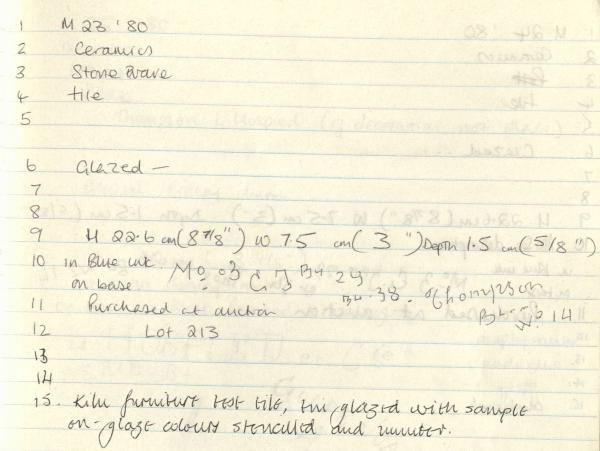 1 M 23 '80
2 Ceramics
3 Stone Ware
4 tile
5
6 Glazed —
7
8
9 H 22.6 cm (8 7/8") W 7.5 cm (3") Depth 1.5 cm (5/8")
10 in Blue ink No 03 C J B4 29
on base B4.38. Thompson B4.5
11 Purchased at auction No 14
12 Lot 213
13
14
15. Kiln furniture test tile, tin glazed with sample
on-glaze colours stencilled and number.